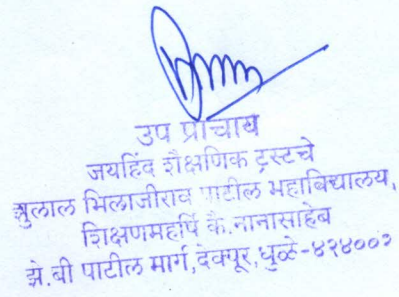 उप प्राचाय
जयहिंद शैक्षणिक ट्रस्टचे
झुलाल भिलाजीराव पाटील महाविद्यालय,
शिक्षणमहर्षि कै.नानासाहेब
झे.बी पाटील मार्ग,देवपूर,धुळे-४२४००२